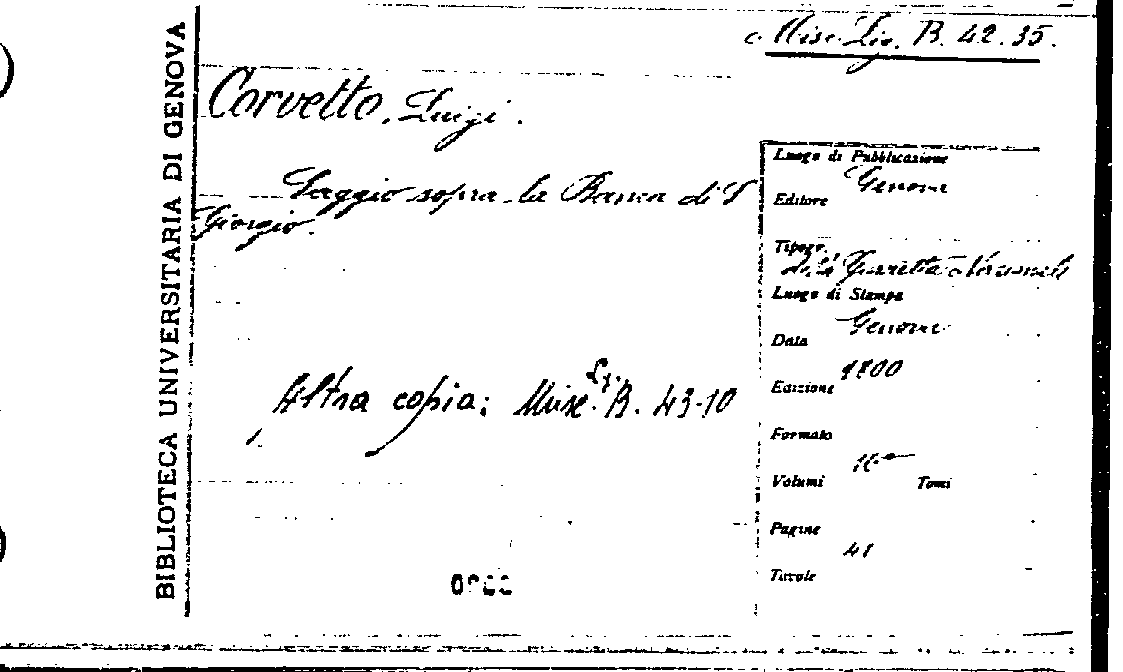 Misc. Lig. B. 42. 35.
BIBLIOTECA UNIVERSITARIA DI GENOVA
Corvetto, Luigi.
Saggio sopra la Banca di S
Giorgio.
Altra copia: Misc. Lig. B. 43-10
Luogo di Pubblicazione
Genova
Editore
Tipogr.
della Gazzetta Nazionale
Luogo di Stampa
Genova
Data
1800
Edizione
Formato
Volumi Tomi
Pagine
41
Tavole